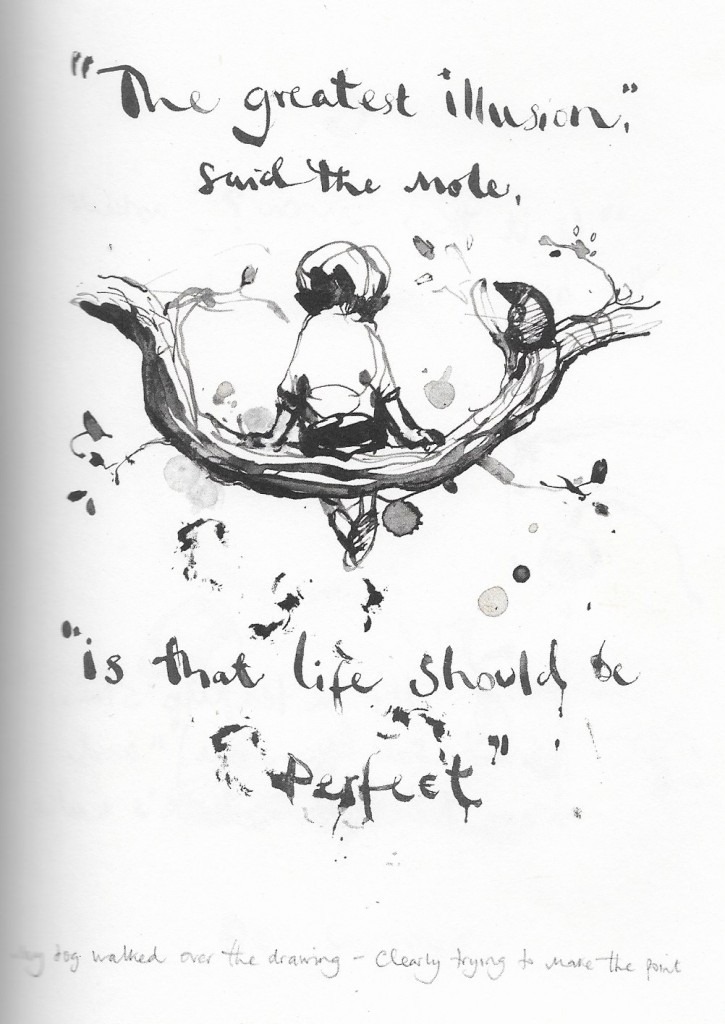 "The greatest illusion,"
said the mole,
"is that life should be
Perfect"
My dog walked over the drawing - Clearly trying to make the point